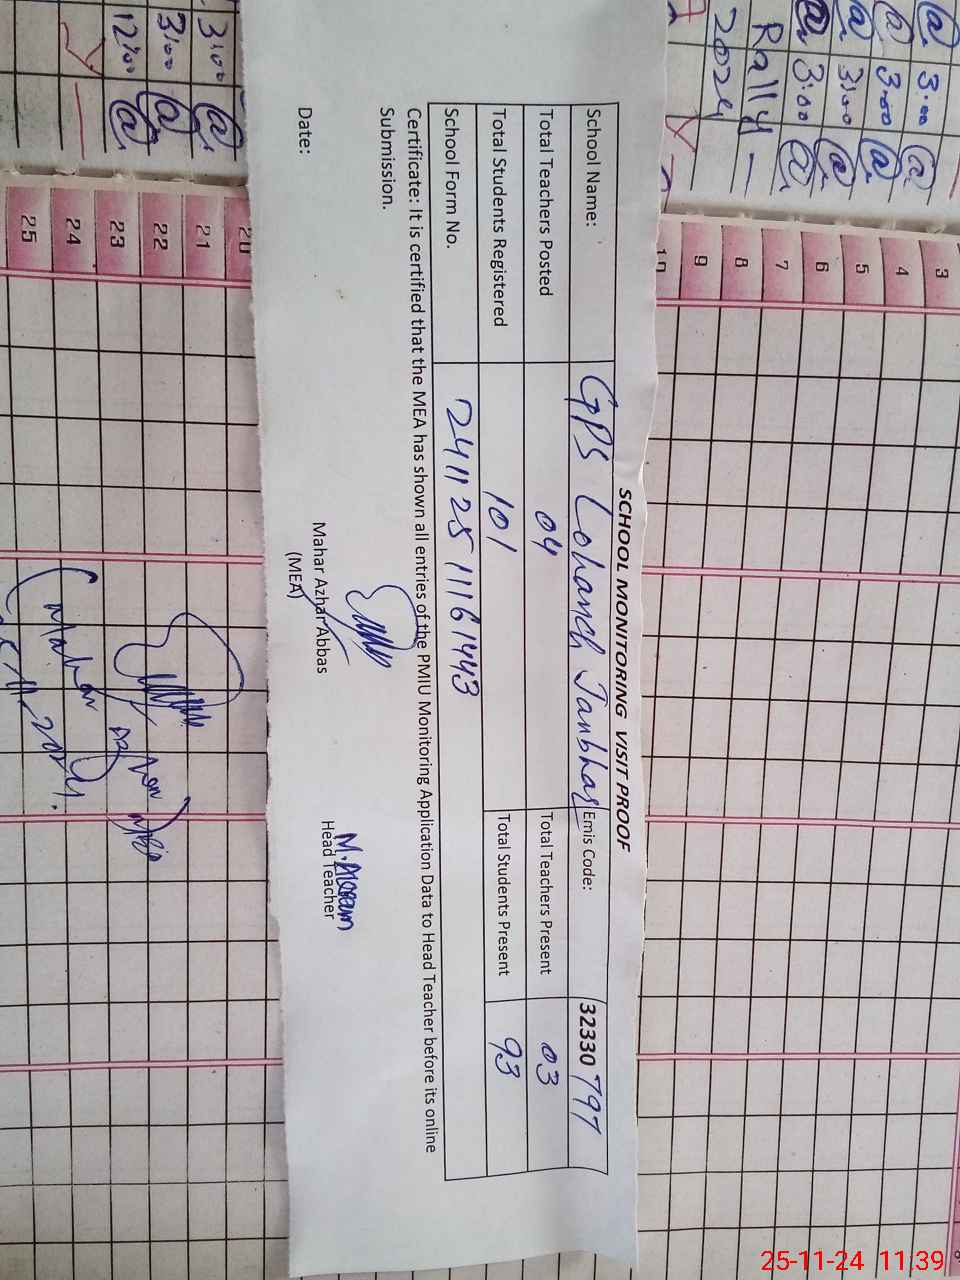 SCHOOL MONITORING VISIT PROOF
School Name: GPS Lohanch Janbhar Emis Code: 32330 797
Total Teachers Posted 04 Total Teachers Present 03
Total Students Registered 101 Total Students Present 93
School Form No. 241125 11161443
Certificate: It is certified that the MEA has shown all entries of the PMIU Monitoring Application Data to Head Teacher before its online
Submission.
M. Akram
Date: Mahar Azhar Abbas Head Teacher
(MEA)
@ 3:00 @
@ 3:00 @
@ 3:00 @
@ 3:00 @
Rally
2024
3:00 @
3:00 @
12:00 @
3
4
5
6
7
8
9
10
20
21
22
23
24
25
25-11-24 11:39